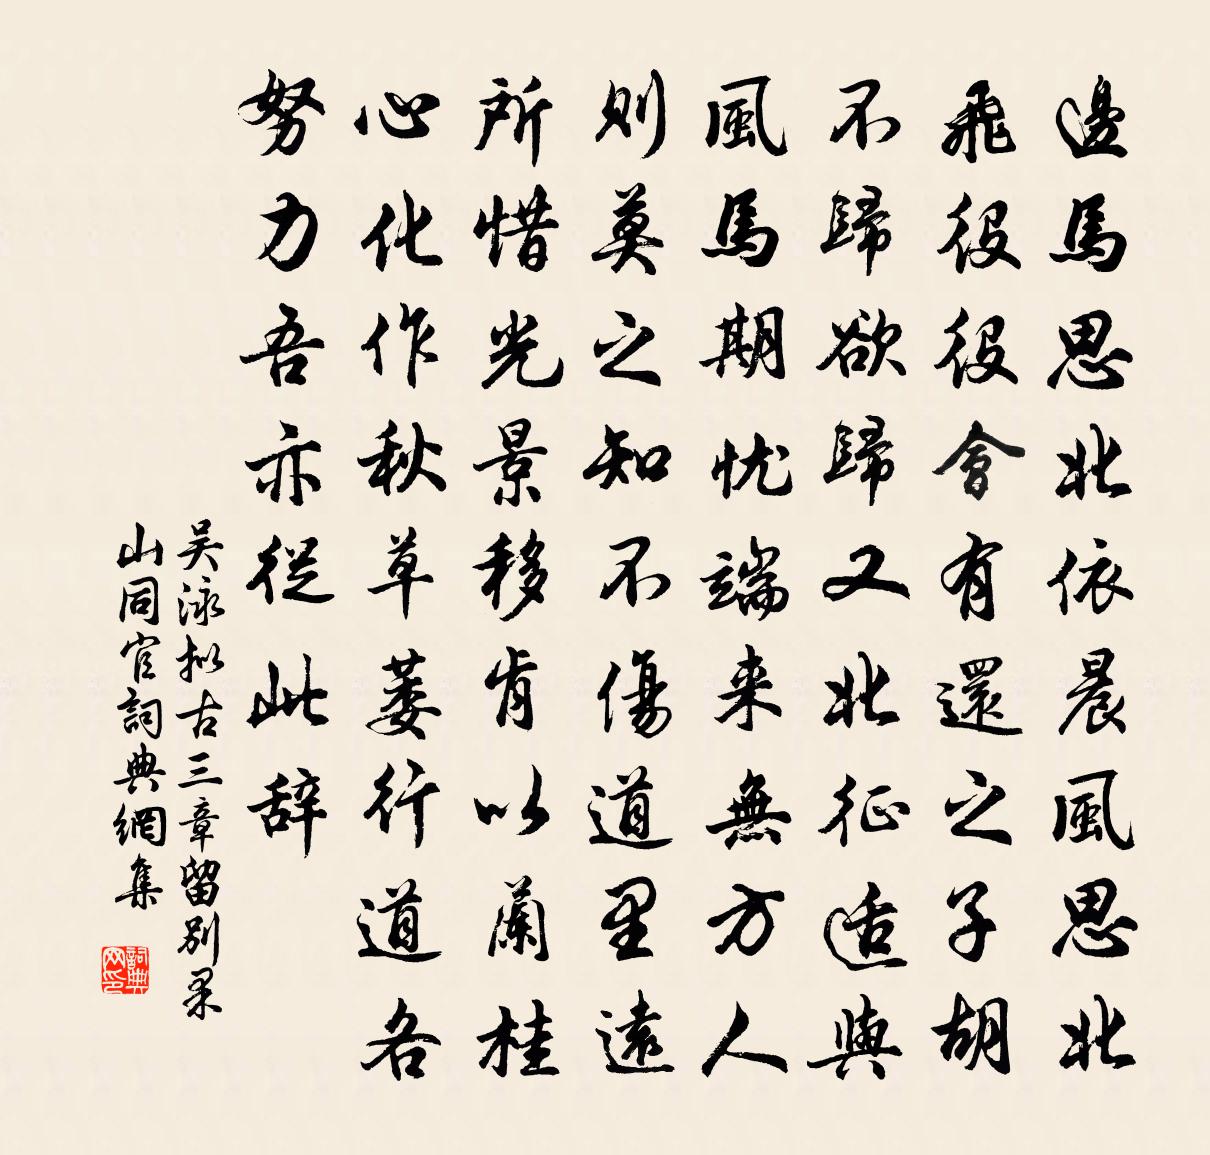 邊馬思北依晨風思北
飛役役會有還之子胡
不歸欲歸又北征适與
風馬期忧端来無方人
則莫之知不傷道里遠
所惜光景移肯以蘭桂
心化作秋草萎行道各
努力吾亦從此辞
吴泳拟古三章留别果
山同官詞典網集
詞典
网印